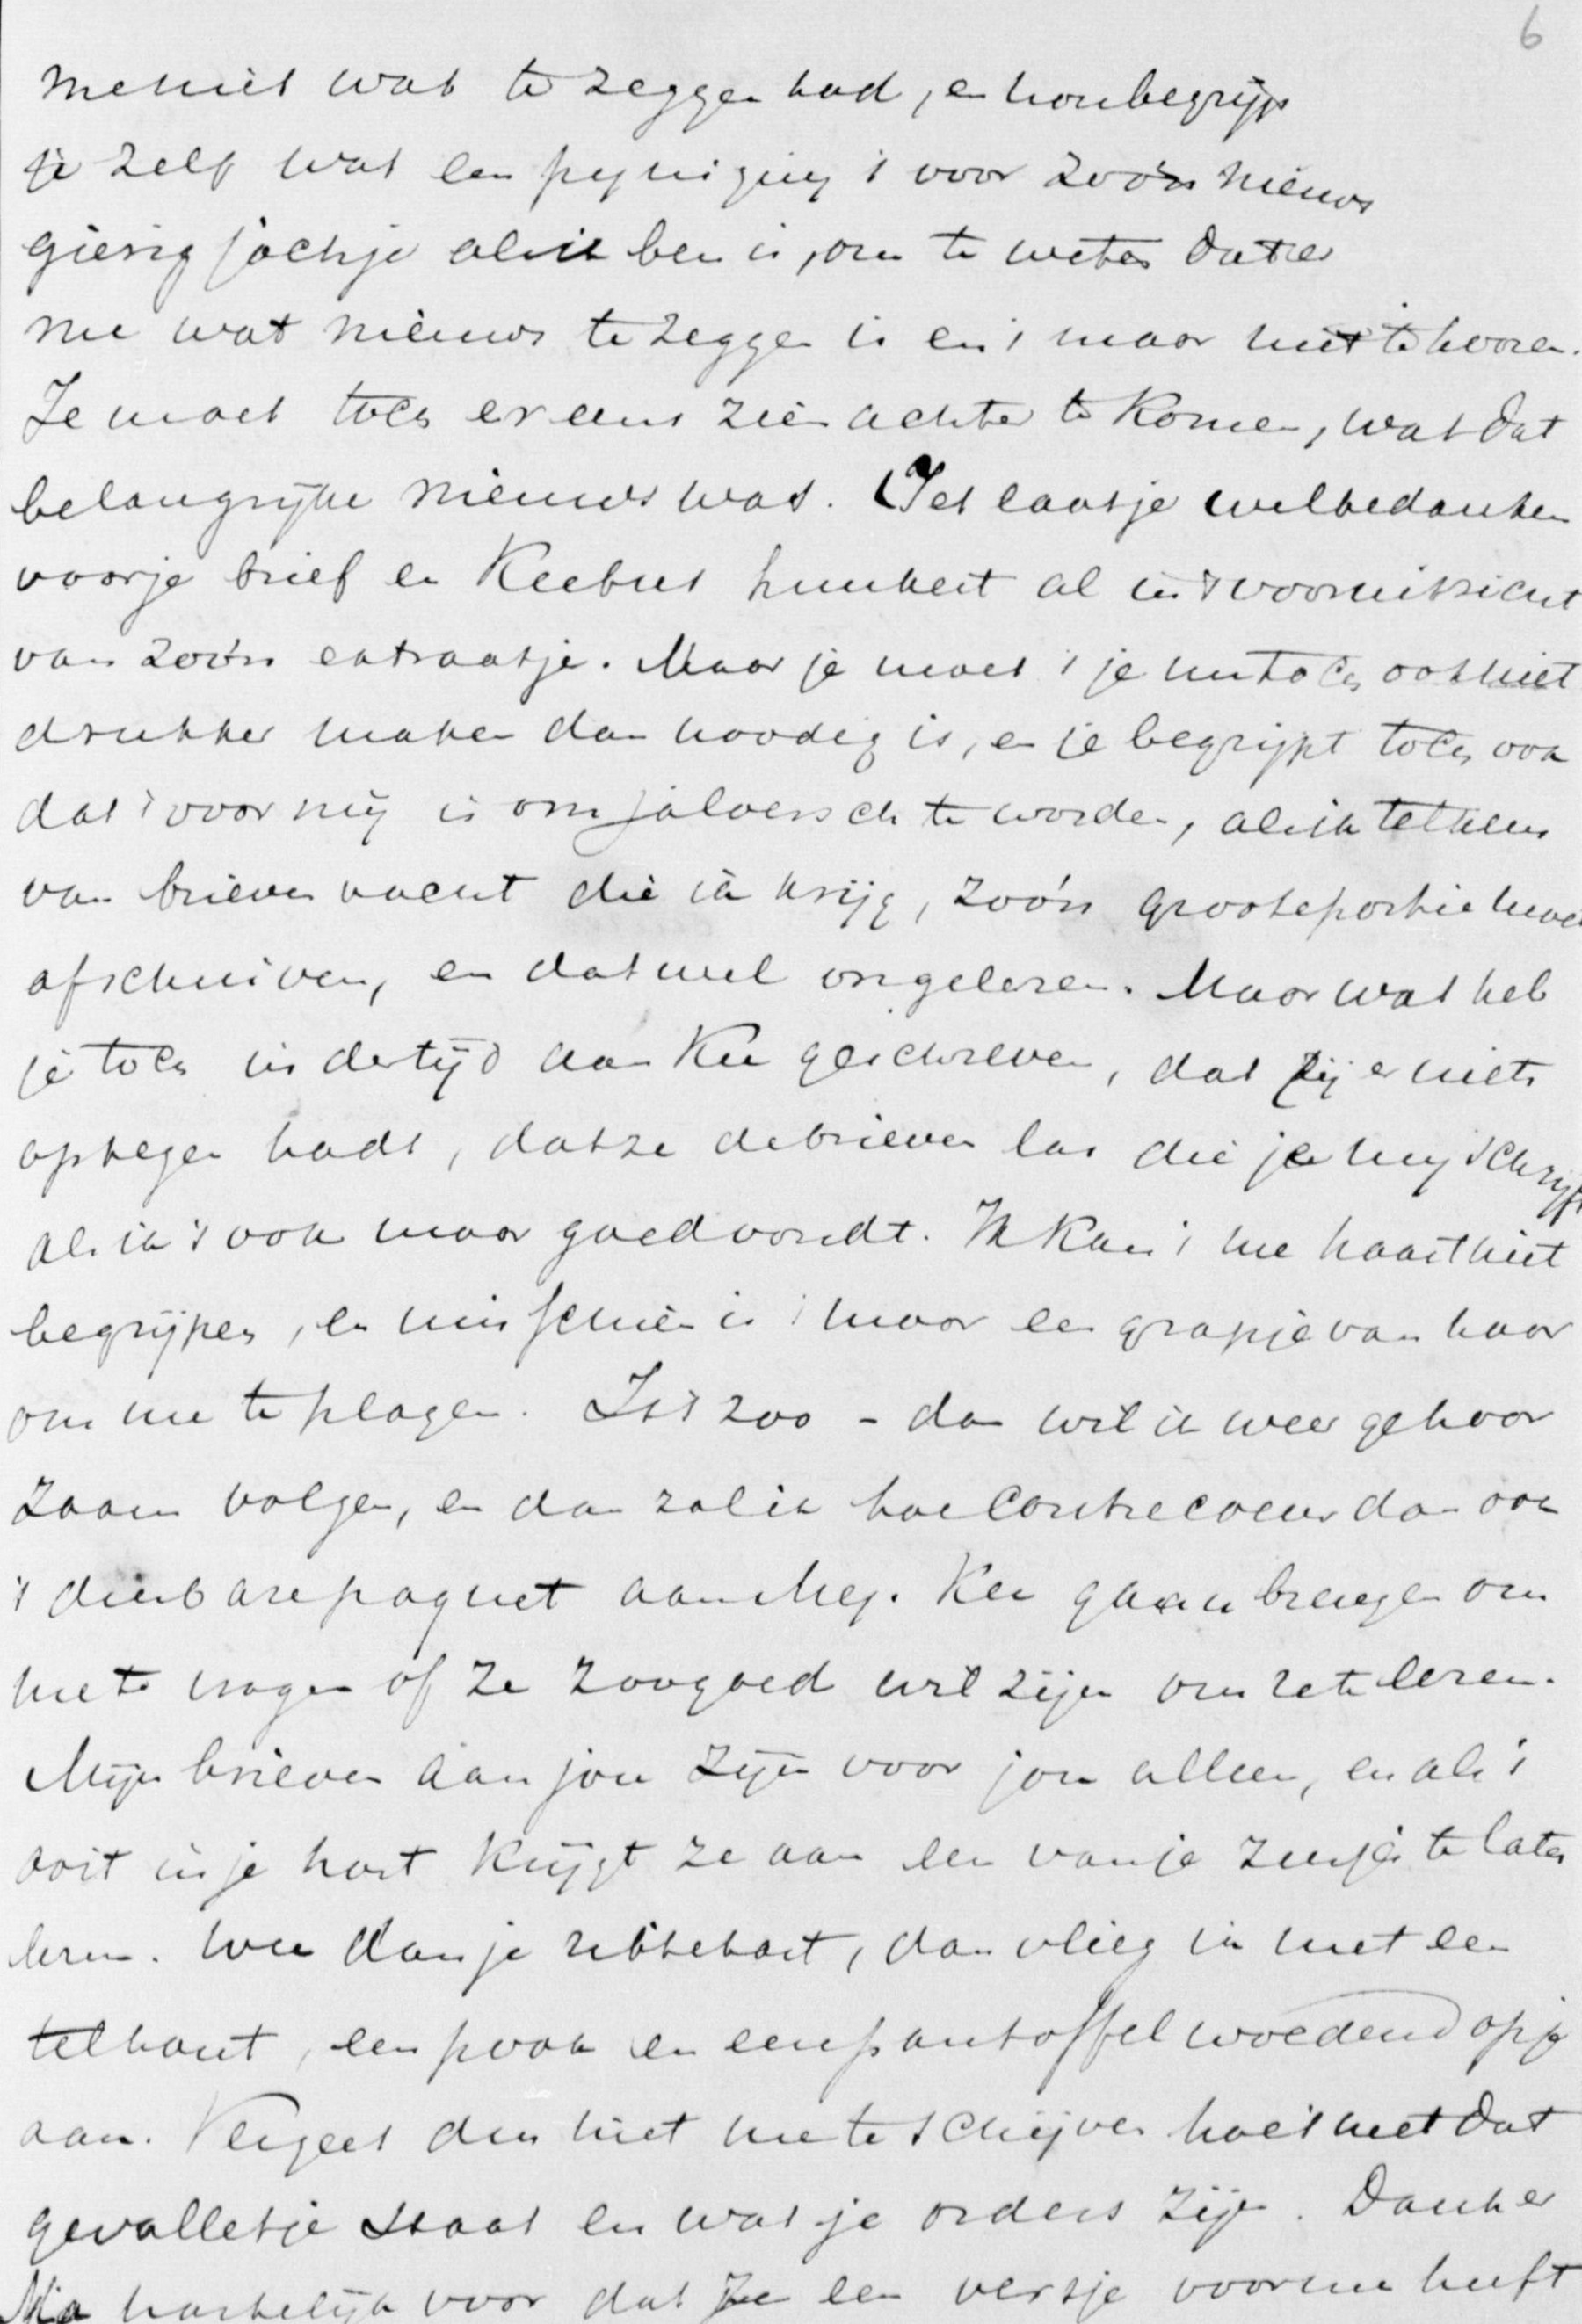 6
me niet wat te zeggen had, en hou begrijp
je zelf wat een pijniging 't voor zoo'n nieuws
gierig jochje als ik ben is, om te weten dat er
me wat nieuws te zeggen is en 't maar niet te hooren.
Je moet toch er eens zien achter te komen, wat dat
belangrijke nieuws was. Jet laat je wel bedanken
voor je brief en Keebus hunkert al in 't vooruitzicht
van zoo'n extraatje. Maar je moet 't je nu toch ook niet
drukker maken dan noodig is, en je begrijpt toch ook
dat 't voor mij is om jaloersch te worden, als ik telkens
van brieven vacht die ik krijg, zoo'n groote portie moet
afschuiven, en dat wel ongelezen. Maar wat heb
je toch indertijd aan Kee geschreven, dat zij er niets
op tegen hadt, dat ze de brieven las die je mij schrijft
als ik 't ook maar goed vondt. Ik kan 't me haast niet
begrijpen, en misschien is 't maar een grapje van haar
om me te plagen. Is 't zoo – dan wil ik weer gehoor
zaam volgen, en dan zal ik hoe contrecoeur dan ook
't dierbare paquet aan Mej. Kee gaan brengen om
me te vragen of ze zoo goed wil zijn om ze te lezen.
Mijn brieven aan jou zijn voor jou alleen, en als 't
ooit in je hart krijgt ze aan een van je zusjes te laten
lezen. wee dan je ribbekast, dan vlieg ik met een
telhout, een pook en een pantoffel woedend op je
aan. Vergeet dus niet me te schrijven hoe 't met dat
gevalletje staat en wat je orders zijn. Dank er
Ma hartelijk voor dat ze een versje voor me heeft